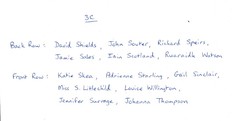 3C
Back Row: David Shields, John Souter, Richard Speirs,
Jamie Soles, Iain Scotland, Ruaraidh Watson
Front Row: Katie Shea, Adrienne Starling, Gail Sinclair,
Miss S. Littlechild, Louise Willington,
Jennifer Savage, Johanna Thompson